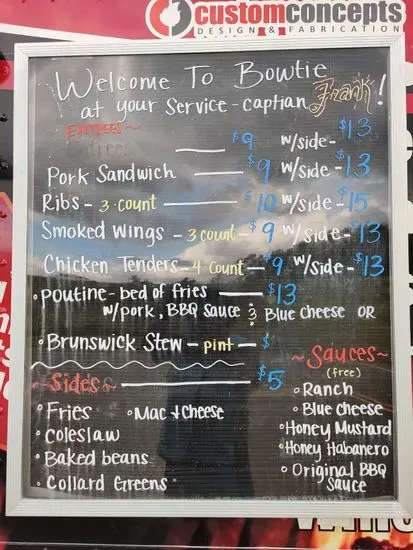 customconcepts
DESIGN & FABRICATION
Welcome To Bowtie
at your service - captian Frank!
ENTREES~
— $9 w/side - $13
Pork Sandwich — $9 w/side - $13
Ribs - 3-count — $10 w/side - $15
Smoked Wings - 3 count - $9 w/side - $13
Chicken Tenders - 4-count - $9 w/side - $13
•Poutine - bed of fries — $13
w/pork, BBQ Sauce & Blue cheese OR
•Brunswick Stew - pint - $
~Sides~ — $5
•Fries •Mac & cheese
•Coleslaw
•Baked beans
•Collard Greens
~Sauces~
(free)
•Ranch
•Blue cheese
•Honey Mustard
•Honey Habanero
•Original BBQ
Sauce